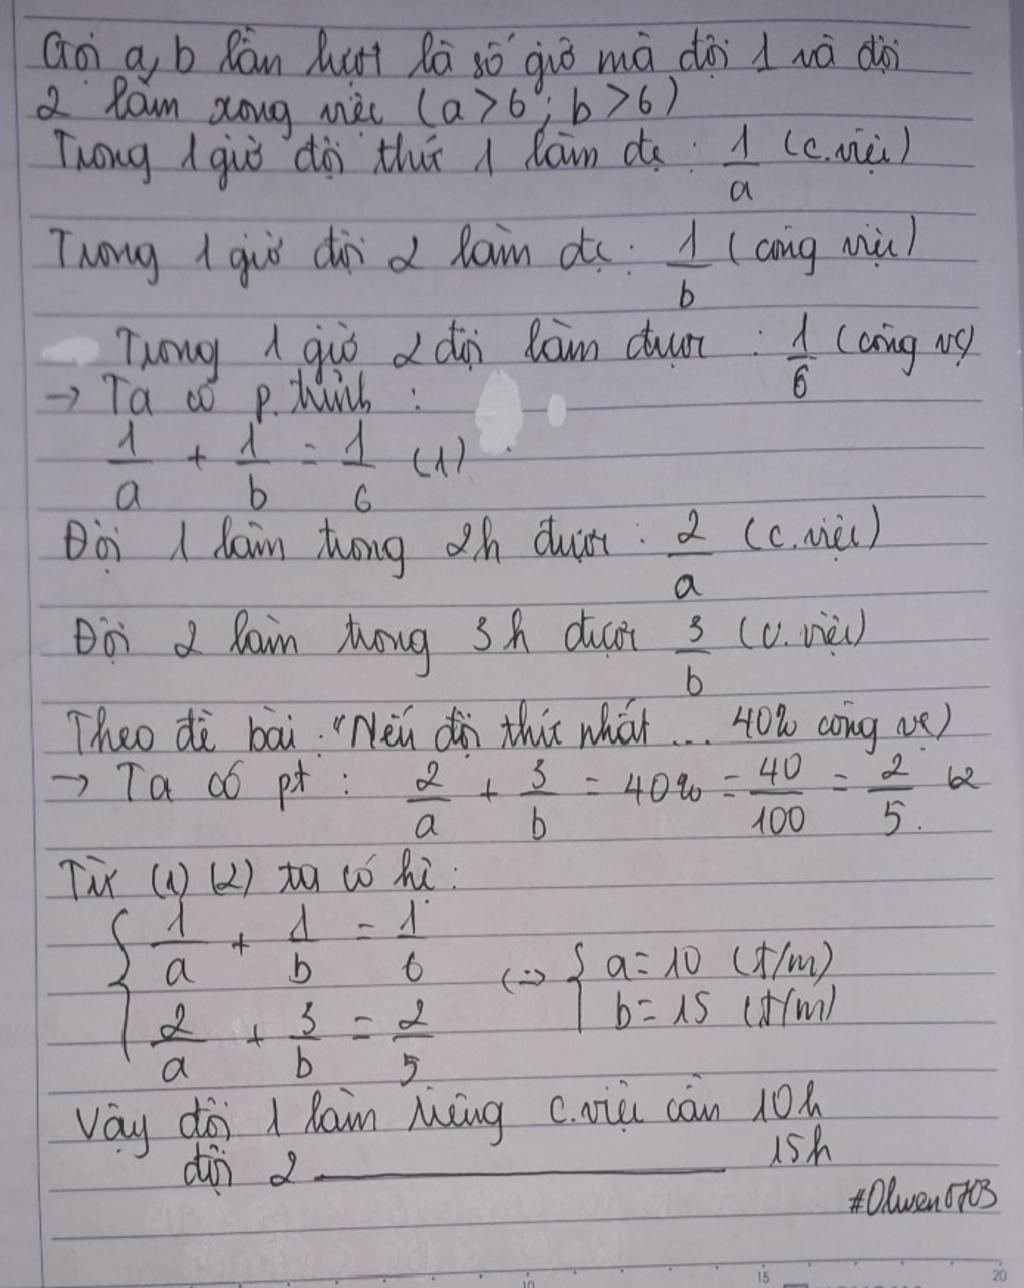 Gọi a, b lần lượt là số giờ mà đội 1 và đội
2 làm xong việc (a > 6; b > 6)
Trong 1 giờ đội thứ 1 làm đc : 1/a (c.việc)
Trong 1 giờ đội 2 làm đc : 1/b (công việc)
Trong 1 giờ 2 đội làm được : 1/6 (công vc)
→ Ta có p.trình :
1/a + 1/b = 1/6 (1)
Đội 1 làm trong 2h được : 2/a (c.việc)
Đội 2 làm trong 3h được 3/b (c.việc)
Theo đề bài : "Nếu đội thứ nhất ... 40% công vc)
→ Ta có pt : 2/a + 3/b = 40% = 40/100 = 2/5. (2
Từ (1) (2) ta có hệ :
{ 1/a + 1/b = 1/6
2/a + 3/b = 2/5
<=> { a = 10 (t/m)
b = 15 (t/m)
Vậy đội 1 làm riêng c.việc cần 10h
đội 2 ——— 15h
#Olwen0703
10 15 20